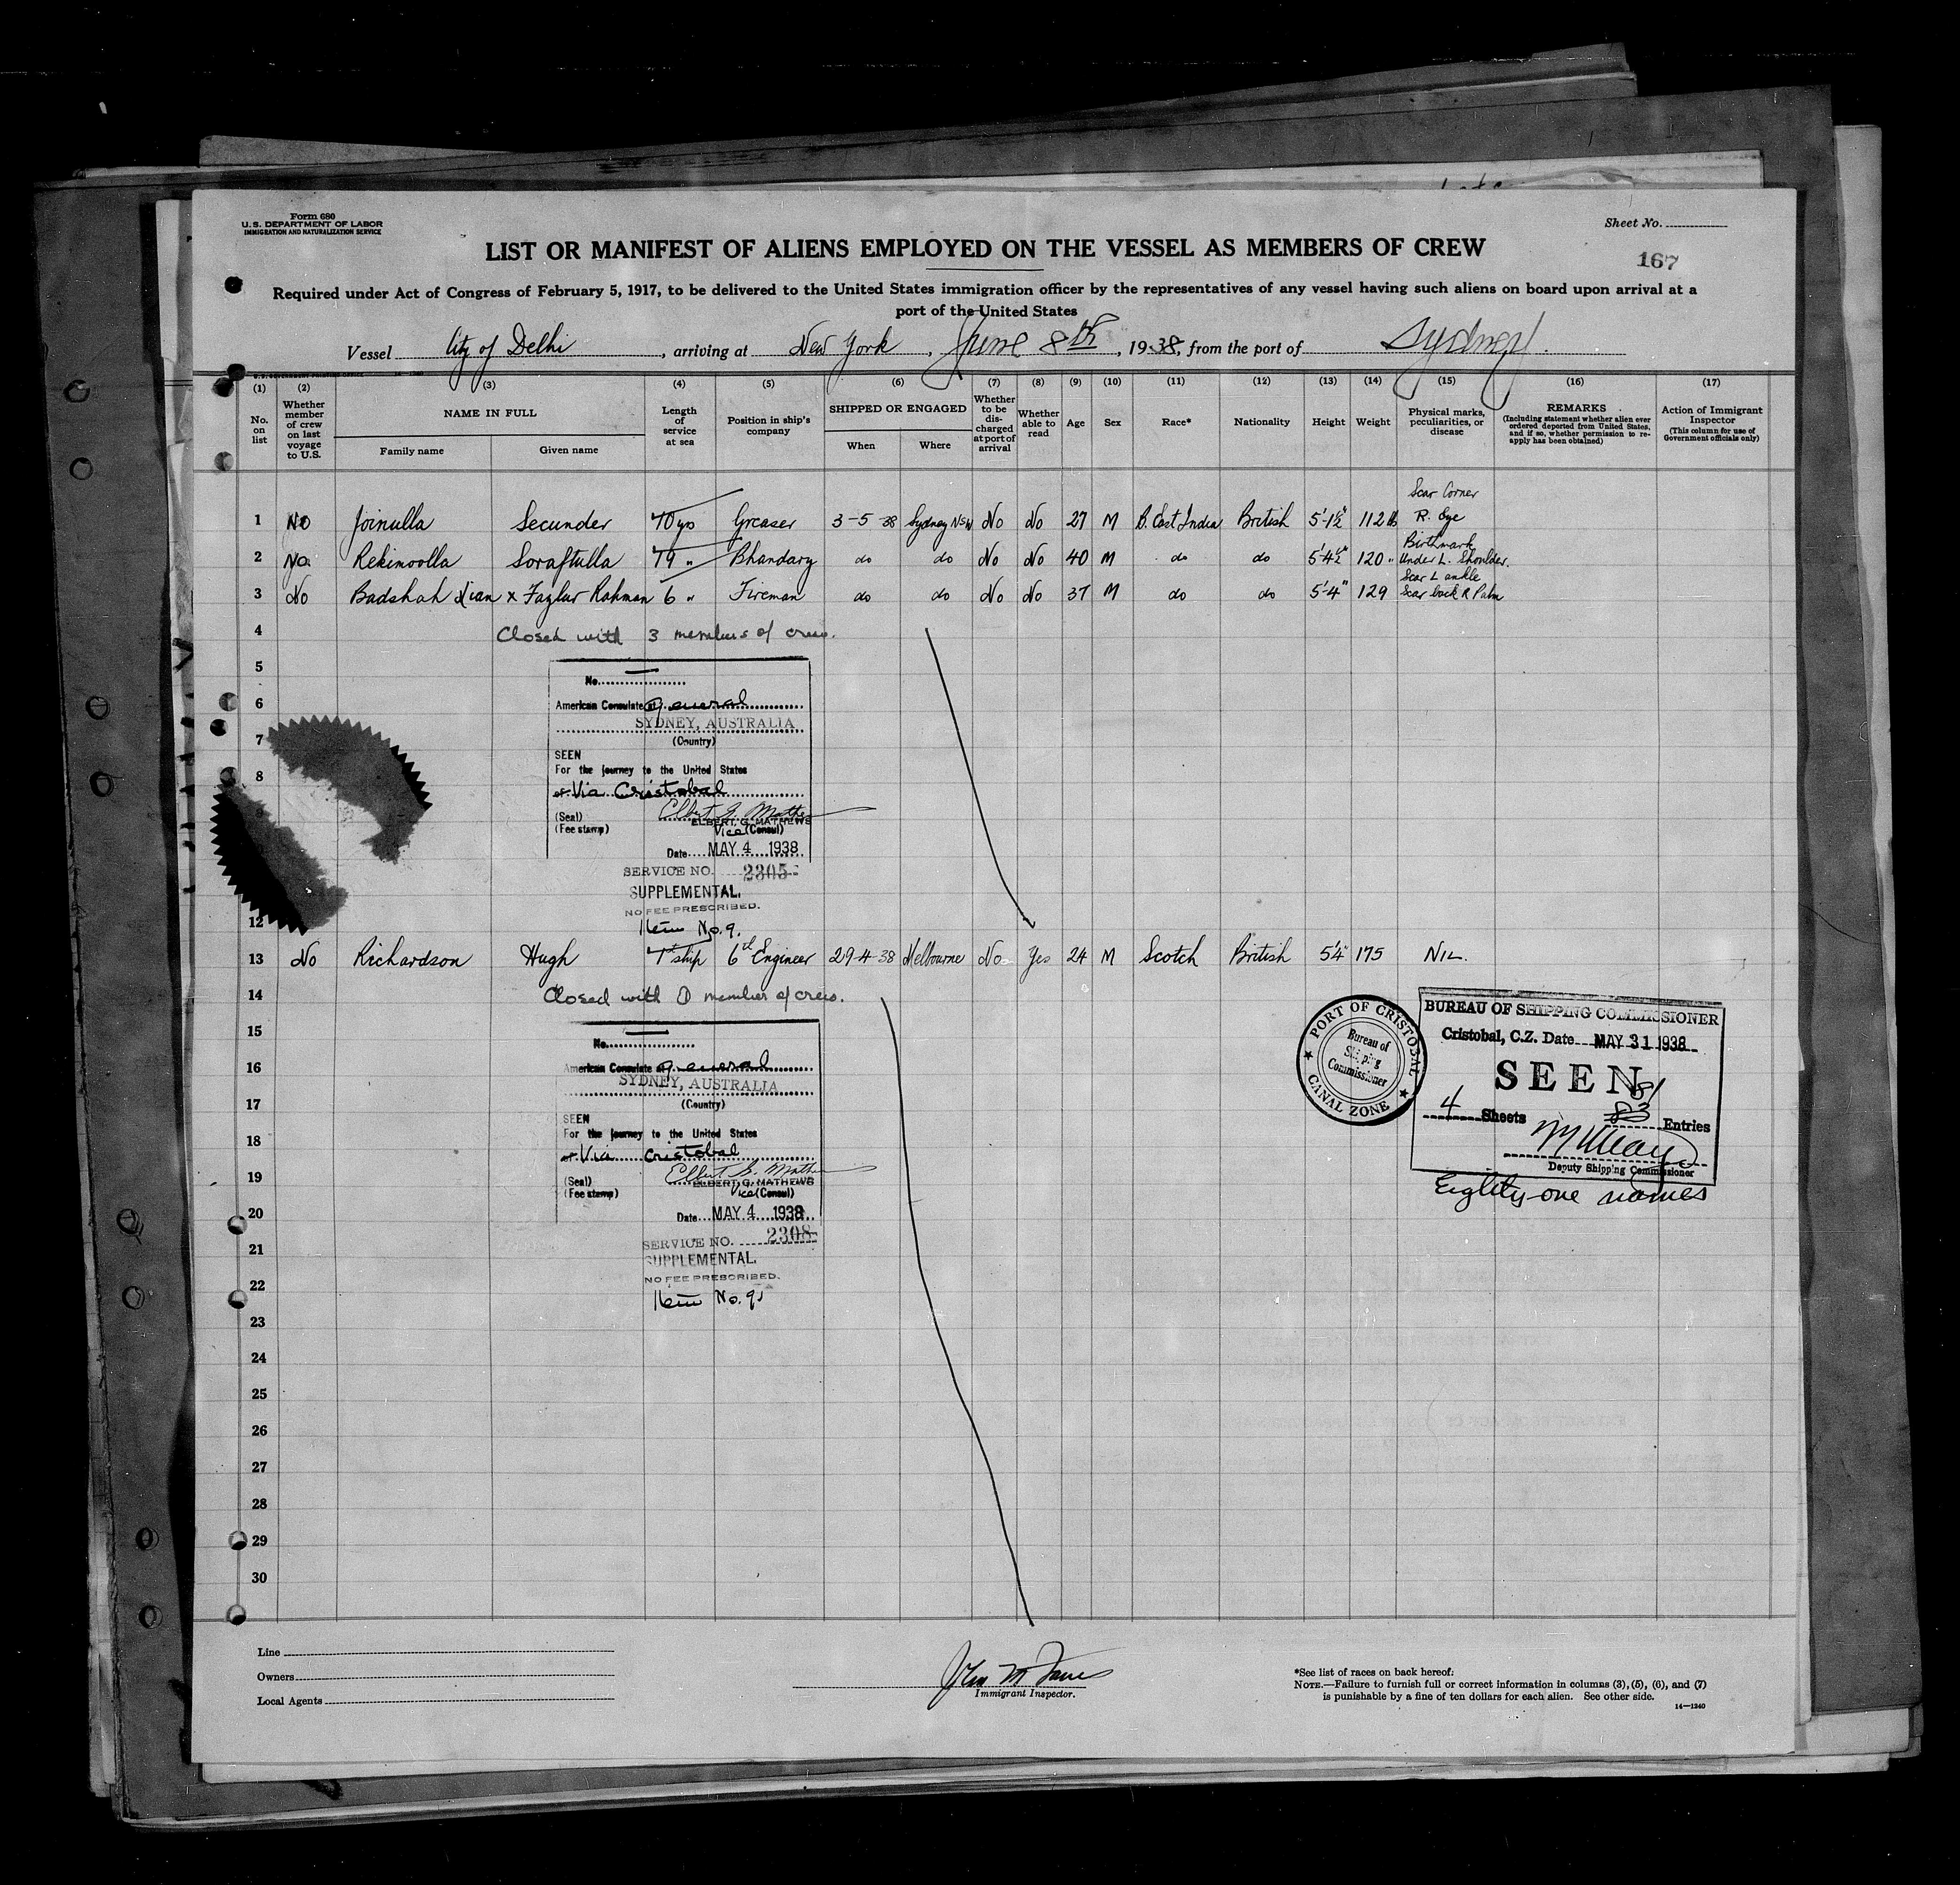 Form 680
U. S. DEPARTMENT OF LABOR
IMMIGRATION AND NATURALIZATION SERVICE
Sheet No.
LIST OR MANIFEST OF ALIENS EMPLOYED ON THE VESSEL AS MEMBERS OF CREW
167
Required under Act of Congress of February 5, 1917, to be delivered to the United States immigration officer by the representatives of any vessel having such aliens on board upon arrival at a
port of the United States
Vessel City of Delhi, arriving at New York, June 8th, 1938, from the port of Sydney.
(1) (2) (3) (4) (5) (6) (7) (8) (9) (10) (11) (12) (13) (14) (15) (16) (17)
No. on list
Whether member of crew on last voyage to U.S.
NAME IN FULL
Family name
Given name
Length of service at sea
Position in ship's company
SHIPPED OR ENGAGED
When
Where
Whether to be discharged at port of arrival
Whether able to read
Age
Sex
Race*
Nationality
Height
Weight
Physical marks, peculiarities, or disease
REMARKS
(Including statement whether alien ever ordered deported from United States, and if so, whether permission to reapply has been obtained)
Action of Immigrant Inspector
(This column for use of Government officials only)
Scar Corner
1 No Joinulla Secunder 10 yrs Greaser 3-5-38 Sydney NSW No No 27 M B. East India British 5'-1½" 112 lb R. Eye
Birthmark
2 No. Rekimoolla Soraftulla 19 " Bhandary do do No No 40 M do do 5'-4½" 120 " Under L. Shoulder.
Scar L ankle
3 No Badshah Mian x Fazlur Rahman 6 " Fireman do do No No 37 M do do 5'-4" 129 Scar back R Palm
4 Closed with 3 members of crew.
5
No.
6 American Consulate General
SYDNEY, AUSTRALIA
7 (Country)
SEEN
8 For the journey to the United States
Via Cristobal
(Seal) Elbert G. Mathews
ELBERT G. MATHEWS
(Fee stamp) Vice (Consul)
Date MAY 4 1938
SERVICE NO. 2305
SUPPLEMENTAL.
NO FEE PRESCRIBED.
12 Item No. 9.
13 No Richardson Hugh 1st ship 6th Engineer 29-4-38 Melbourne No Yes 24 M Scotch British 5'4" 175 NIL.
14 Closed with 1 member of crew.
15
No.
16 American Consulate General
SYDNEY, AUSTRALIA
17 (Country)
SEEN
18 For the journey to the United States
Via Cristobal
19 (Seal) Elbert G. Mathews
ELBERT G. MATHEWS
(Fee stamp) Vice (Consul)
20 Date MAY 4 1938
21 SERVICE NO. 2308
SUPPLEMENTAL.
22 NO FEE PRESCRIBED.
Item No. 9
23
24
25
26
27
28
29
30
PORT OF CRISTOBAL
Bureau of
Shipping
Commissioner
CANAL ZONE
BUREAU OF SHIPPING COMMISSIONER
Cristobal, C.Z. Date MAY 31 1938
SEEN
81
4 Sheets 83 Entries
Deputy Shipping Commissioner
Eighty-one names
Line
Owners
Local Agents
Immigrant Inspector.
*See list of races on back hereof.
NOTE.—Failure to furnish full or correct information in columns (3), (5), (6), and (7)
is punishable by a fine of ten dollars for each alien. See other side.
14—1240